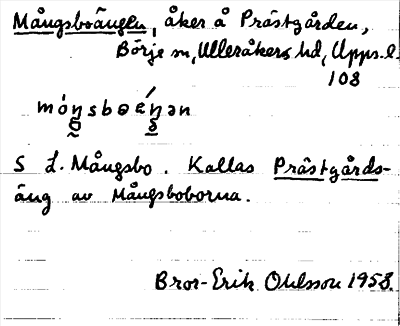 Mångsboängen, åker å Prästgården,
Börje sn, Ulleråkers hd, Upps. l.
108
S L. Mångsbo. Kallas Prästgårds-
äng av Mångsboborna.
Bror-Erik Ohlsson 1958.